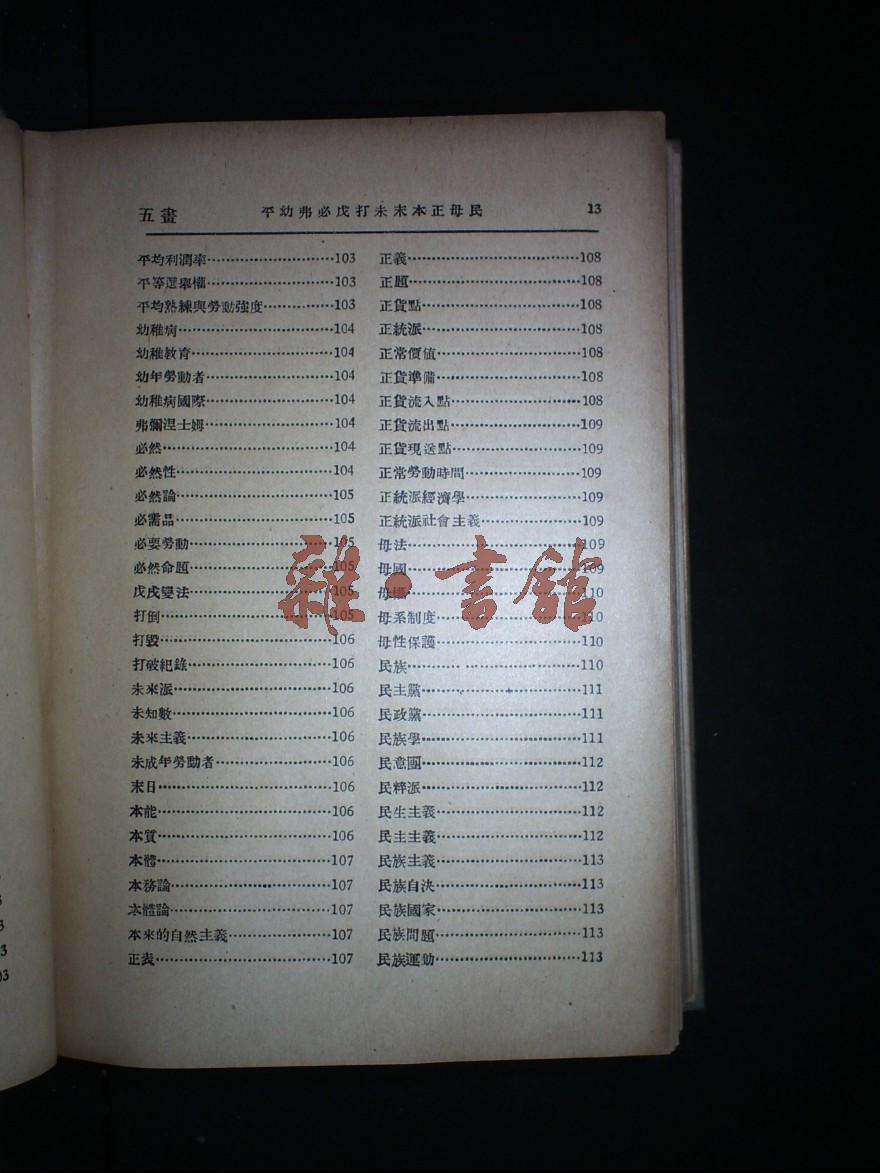 五畫 平幼弗必戊打未末本正母民 13
平均利潤率 103
平等選舉權 103
平均熟練與勞動強度 103
幼稚病 104
幼稚教育 104
幼年勞動者 104
幼稚病國際 104
弗彌涅士姆 104
必然 104
必然性 104
必然論 105
必需品 105
必要勞動 105
必然命題 105
戊戌變法 105
打倒 105
打毀 106
打破紀錄 106
未來派 106
未知數 106
未來主義 106
未成年勞動者 106
末日 106
本能 106
本質 106
本體 107
本務論 107
本體論 107
本來的自然主義 107
正表 107
正義 108
正題 108
正貨點 108
正統派 108
正常價值 108
正貨準備 108
正貨流入點 108
正貨流出點 109
正貨現送點 109
正常勞動時間 109
正統派經濟學 109
正統派社會主義 109
母法 109
母國 109
母權 110
母系制度 110
母性保護 110
民族 110
民主黨 111
民政黨 111
民族學 111
民意團 112
民粹派 112
民生主義 112
民主主義 112
民族主義 113
民族自決 113
民族國家 113
民族問題 113
民族運動 113
雜·書館
3
3
3
03